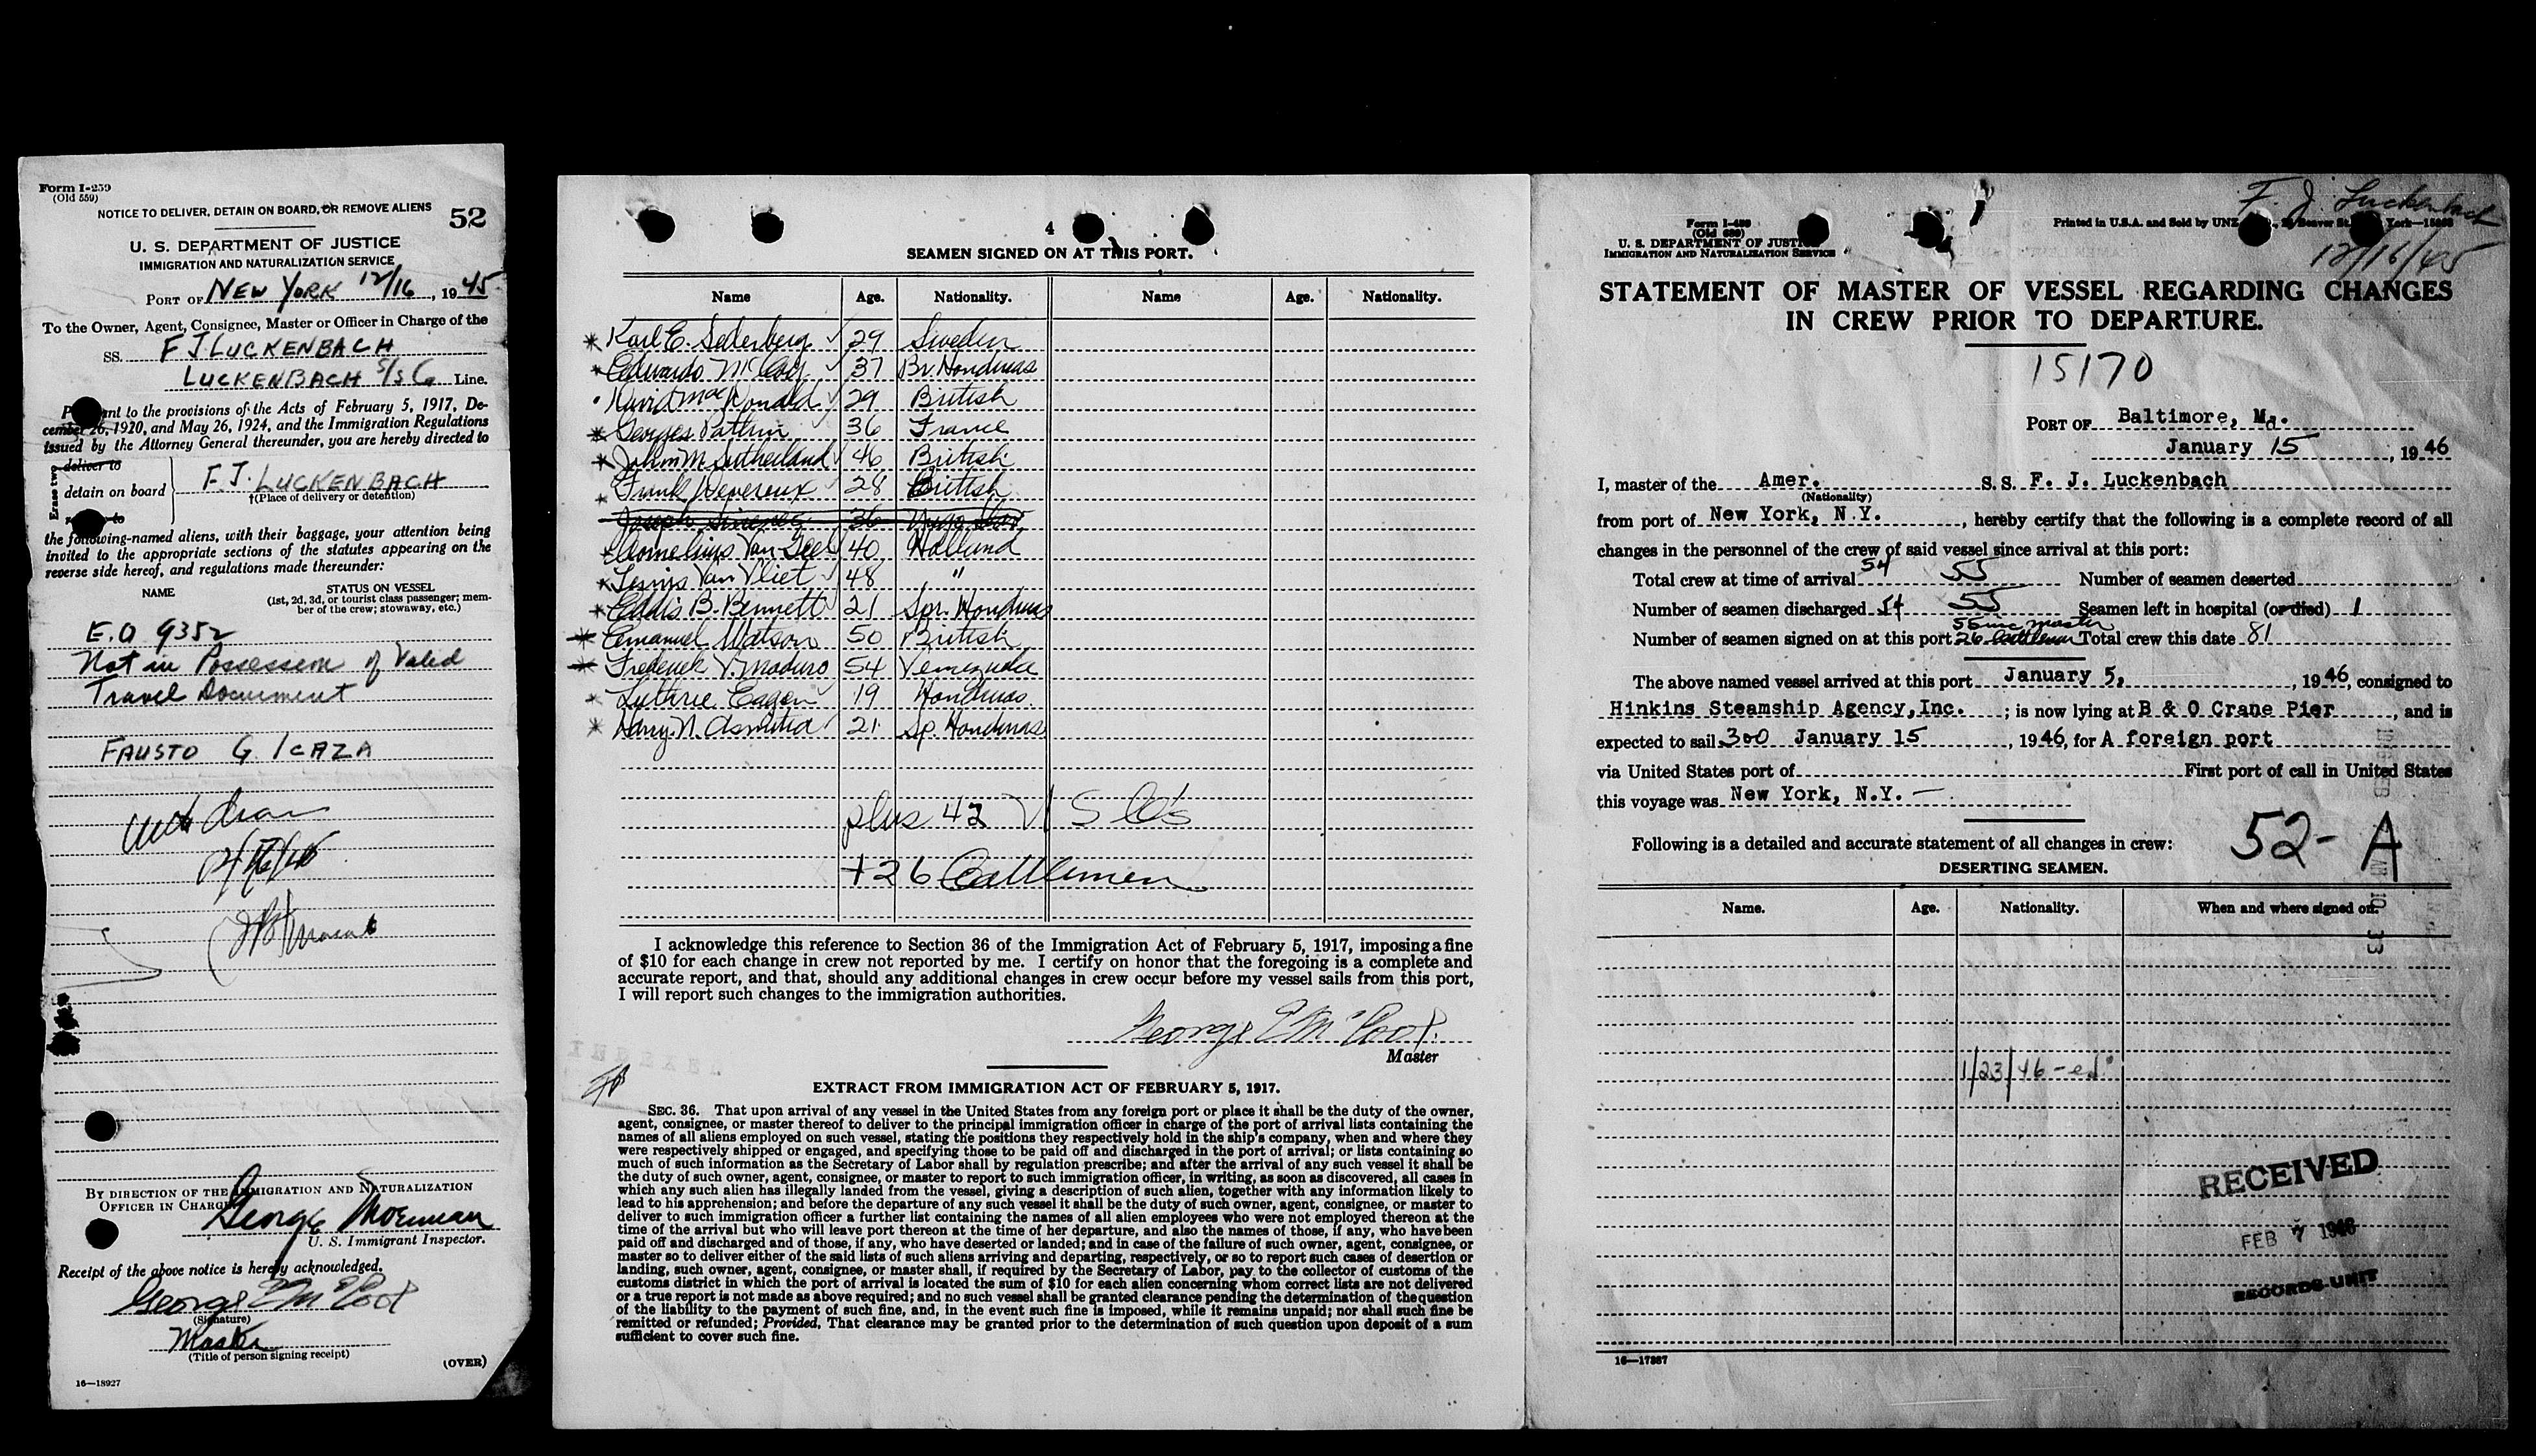 Form I-259
(Old 559)
NOTICE TO DELIVER, DETAIN ON BOARD, OR REMOVE ALIENS
52
U. S. DEPARTMENT OF JUSTICE
IMMIGRATION AND NATURALIZATION SERVICE
PORT OF NEW YORK 12/16, 1945
To the Owner, Agent, Consignee, Master or Officer in Charge of the
SS. F J LUCKENBACH
LUCKENBACH S/S Co Line.
nt to the provisions of the Acts of February 5, 1917, De-
cember 26, 1920, and May 26, 1924, and the Immigration Regulations
issued by the Attorney General thereunder, you are hereby directed to
Erase two
deliver to
detain on board
F. J. LUCKENBACH
†(Place of delivery or detention)
to
the following-named aliens, with their baggage, your attention being
invited to the appropriate sections of the statutes appearing on the
reverse side hereof, and regulations made thereunder:
NAME
STATUS ON VESSEL
(1st, 2d, 3d, or tourist class passenger; mem-
ber of the crew; stowaway, etc.)
E.O 9352
Not in Possession of Valid
Travel Document
FAUSTO G. ICAZA
BY DIRECTION OF THE IMMIGRATION AND NATURALIZATION
OFFICER IN CHARGE
George
U. S. Immigrant Inspector.
Receipt of the above notice is hereby acknowledged.
George E McPoot
(Signature)
Master
(Title of person signing receipt)
(OVER)
16—18927
4
SEAMEN SIGNED ON AT THIS PORT.
Name Age. Nationality. Name Age. Nationality.
Karl E. Sederberg 29 Sweden
Edwardo McCoy 37 Br. Honduras
David MacDonald 29 British
Georges 36 France
John M Sutherland 46 British
Frank Devereux 28 British
Joseph 36
Cornelius Van Geel 40 Holland
Van Vliet 48 "
Eddis B. Bennett 21 Spr. Honduras
Emanuel Watson 50 British
Frederick V. Maduro 54 Venezuela
Luthrie Eagen 19 Honduras.
Harry N. 21 Sp. Honduras
plus 42
+26 Cattlemen
I acknowledge this reference to Section 36 of the Immigration Act of February 5, 1917, imposing a fine
of $10 for each change in crew not reported by me. I certify on honor that the foregoing is a complete and
accurate report, and that, should any additional changes in crew occur before my vessel sails from this port,
I will report such changes to the immigration authorities.
George E McPoot.
Master
EXTRACT FROM IMMIGRATION ACT OF FEBRUARY 5, 1917.
SEC. 36. That upon arrival of any vessel in the United States from any foreign port or place it shall be the duty of the owner,
agent, consignee, or master thereof to deliver to the principal immigration officer in charge of the port of arrival lists containing the
names of all aliens employed on such vessel, stating the positions they respectively hold in the ship's company, when and where they
were respectively shipped or engaged, and specifying those to be paid off and discharged in the port of arrival; or lists containing so
much of such information as the Secretary of Labor shall by regulation prescribe; and after the arrival of any such vessel it shall be
the duty of such owner, agent, consignee, or master to report to such immigration officer, in writing, as soon as discovered, all cases in
which any such alien has illegally landed from the vessel, giving a description of such alien, together with any information likely to
lead to his apprehension; and before the departure of any such vessel it shall be the duty of such owner, agent, consignee, or master to
deliver to such immigration officer a further list containing the names of all alien employees who were not employed thereon at the
time of the arrival but who will leave port thereon at the time of her departure, and also the names of those, if any, who have been
paid off and discharged and of those, if any, who have deserted or landed; and in case of the failure of such owner, agent, consignee, or
master so to deliver either of the said lists of such aliens arriving and departing, respectively, or so to report such cases of desertion or
landing, such owner, agent, consignee, or master shall, if required by the Secretary of Labor, pay to the collector of customs of the
customs district in which the port of arrival is located the sum of $10 for each alien concerning whom correct lists are not delivered
or a true report is not made as above required; and no such vessel shall be granted clearance pending the determination of the question
of the liability to the payment of such fine, and, in the event such fine is imposed, while it remains unpaid; nor shall such fine be
remitted or refunded; Provided, That clearance may be granted prior to the determination of such question upon deposit of a sum
sufficient to cover such fine.
F. J. Luckenbach
12/16/45
Form I-489
(Old 689)
U. S. DEPARTMENT OF JUSTICE
IMMIGRATION AND NATURALIZATION SERVICE
Printed in U.S.A. and Sold by UNZ Beaver St. York
STATEMENT OF MASTER OF VESSEL REGARDING CHANGES
IN CREW PRIOR TO DEPARTURE.
15170
PORT OF Baltimore, Md.
January 15, 1946
I, master of the Amer. S.S. F. J. Luckenbach
(Nationality)
from port of New York, N.Y., hereby certify that the following is a complete record of all
changes in the personnel of the crew of said vessel since arrival at this port:
Total crew at time of arrival 54 55 Number of seamen deserted
Number of seamen discharged 54 55 Seamen left in hospital (or died) 1
55 inc master
Number of seamen signed on at this port 26 Cattlemen Total crew this date 81
The above named vessel arrived at this port January 5, , 1946, consigned to
Hinkins Steamship Agency, Inc. ; is now lying at B & O Crane Pier , and is
expected to sail 300 January 15 , 1946, for A foreign port
via United States port of First port of call in United States
this voyage was New York, N.Y. —
52-A
Following is a detailed and accurate statement of all changes in crew:
DESERTING SEAMEN.
Name. Age. Nationality. When and where signed on.
1/23/46-ed
RECEIVED
FEB 7 1946
RECORDS UNIT